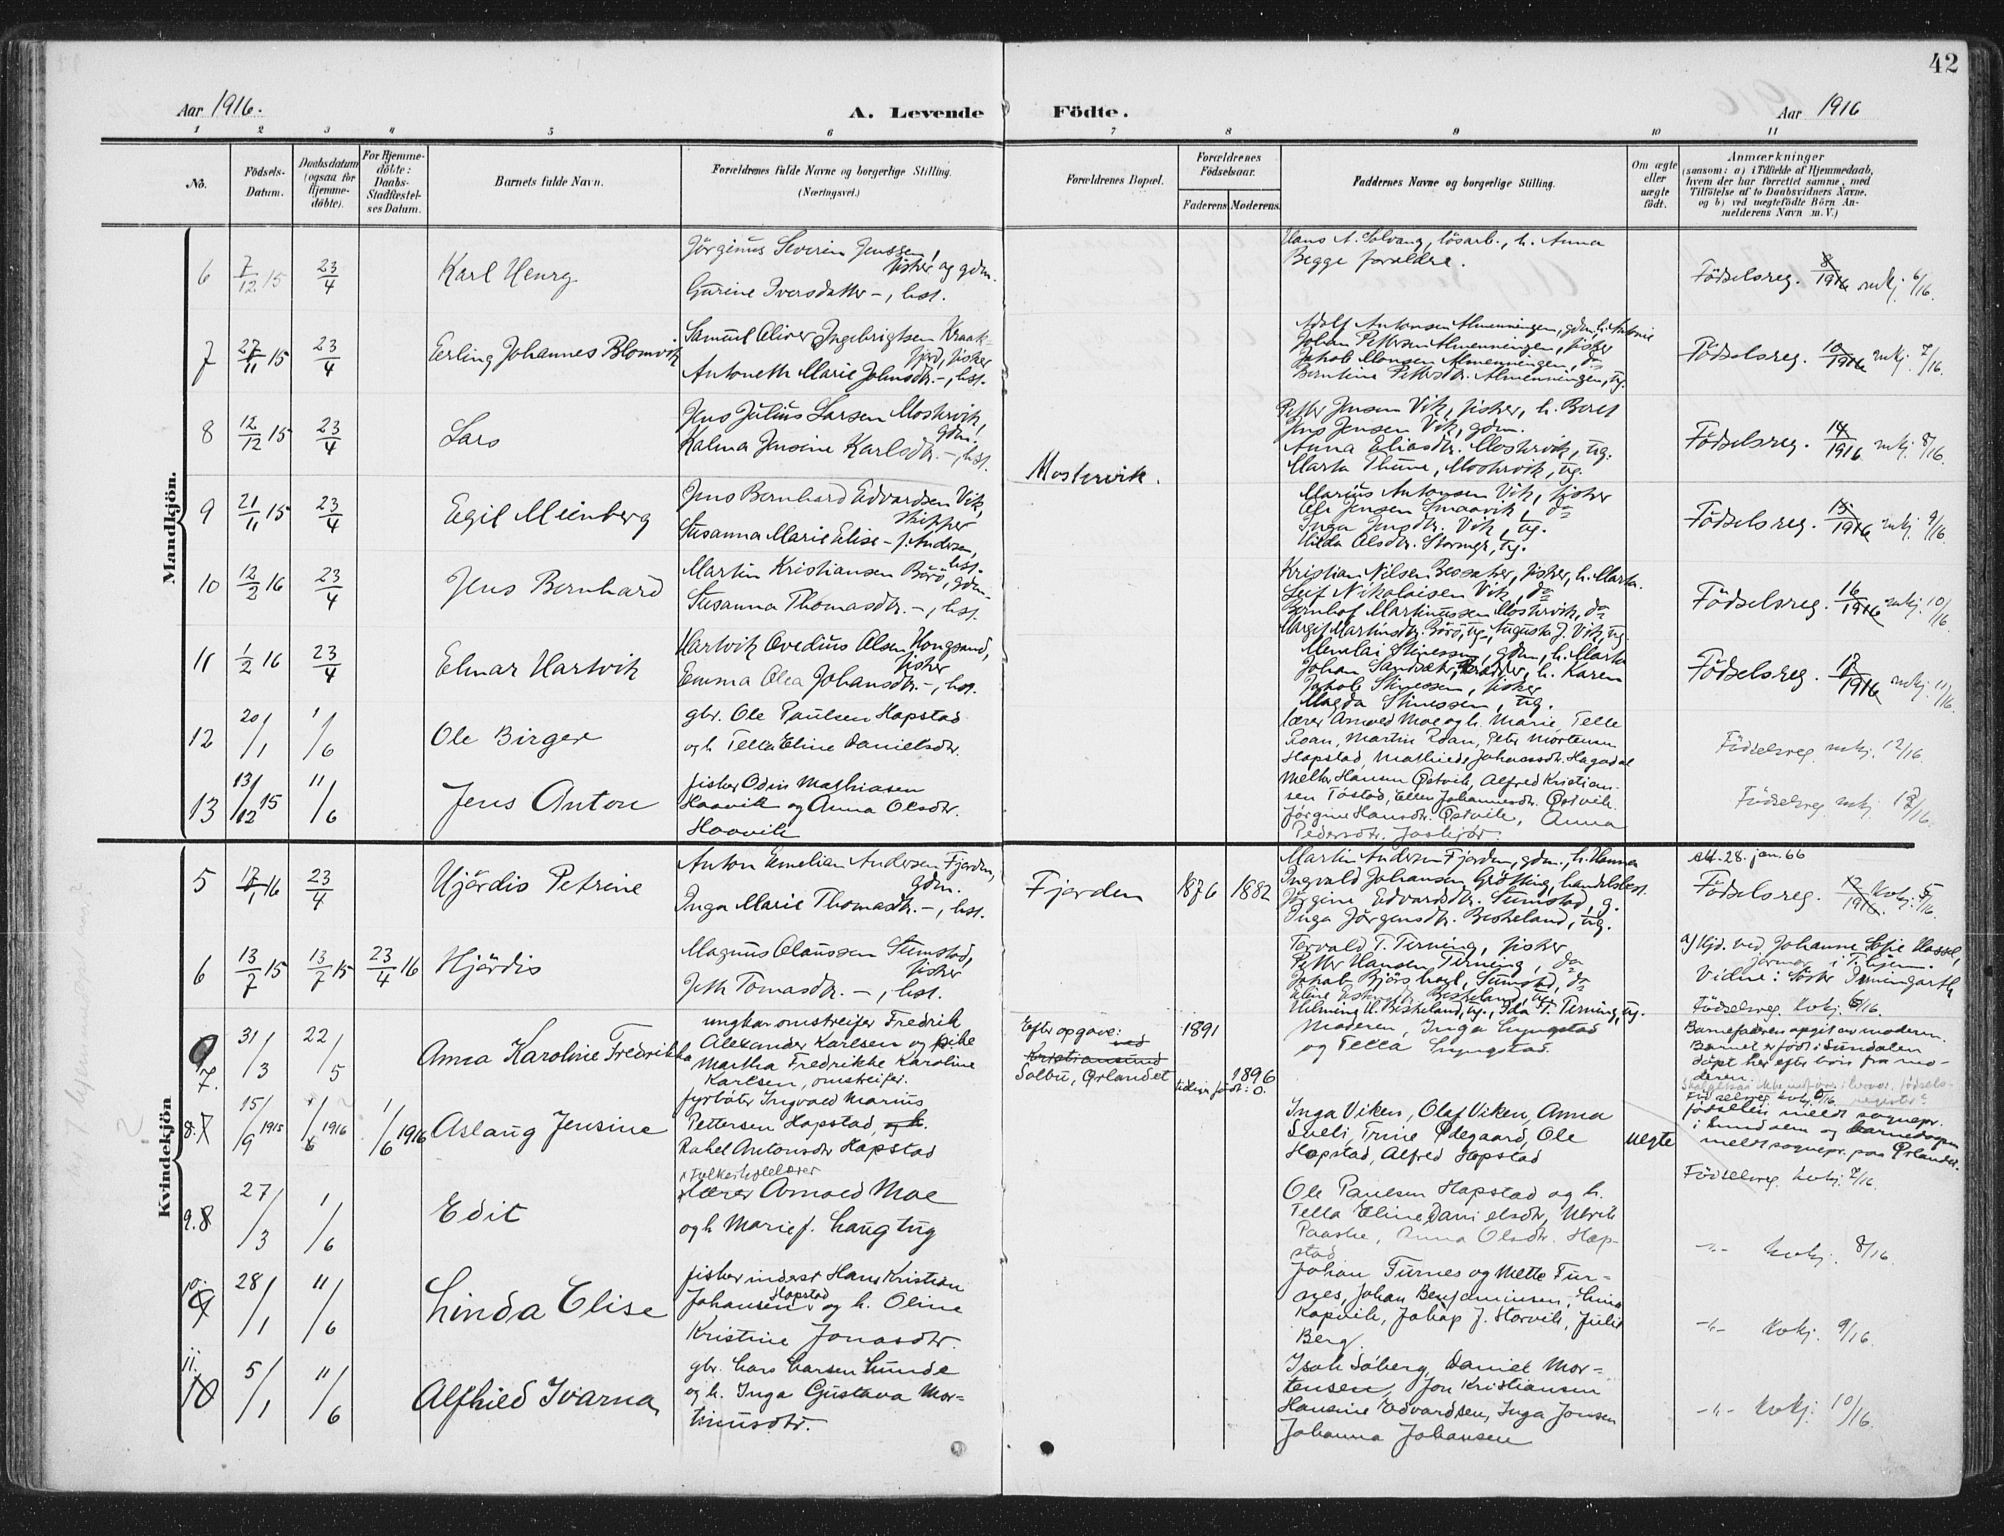 42
Aar 1916.
A. Levende
Födte.
Aar 1916
1 2 3 4 5 6 7 8 9 10 11
No.
Födsels-
Datum.
Daabsdatum
(ogsaa for
Hjemme-
döbte).
For Hjemme-
döbte:
Daabs-
Stadfæstel-
ses Datum.
Barnets fulde Navn.
Forældrenes fulde Navne og borgerlige Stilling.
(Næringsvei.)
Forældrenes Bopæl.
Forældrenes
Födselsaar.
Faderens. Moderens.
Faddernes Navne og borgerlige Stilling.
Om ægte
eller
uægte
födt.
Anmærkninger
(saasom: a) i Tilfælde af Hjemmedaab,
hvem der har forrettet samme, med
Tilföielse af to Daabsvidners Navne,
og b) ved uægtefödte Börn An-
melderens Navn m. V.)
Mandkjön.
6
7/12 15
23/4
Karl Henry
Jörginus Severin Jenssen,
fisker og gdm.
Gurine Iversdatter –, hst.
Hans A. Solvang, lösarb., h. Anna
Begge forældre.
Födselsreg. 8/1916 mkj. 6/16.
7
27/11 15
23/4
Erling Johannes Blomvik
Samuel Oliver Ingebrigtsen Kraak-
fjord, fisker
Antoneth Marie Johnsdtr. –, hst.
Adolf Antonsen Almenningen, gdm., h. Antonie
Johan Pettersen Almenningen, fisker
Jakob Monsen Almenningen, do
Berntine Pettersdtr. Almenningen, ug.
Födselsreg. 10/1916 mkj. 7/16.
8
12/12 15
23/4
Lars
Jens Julius Larsen Mostervik,
gdm.
Kalma Jensine Karlsdtr. –, hst.
Mostervik.
Petter Jensen Vik, fisker, h. Beret
Jens Jensen Vik, gdm.
Anna Eliasdtr. Mostervik, ug.
Marta Thune, Mostervik, ug.
Födselsreg. 14/1916 mkj. 8/16.
9
21/11 15
23/4
Egil Meinberg
Jens Bernhard Edvardsen Vik,
skipper
Susanna Marie Elise – f. Andersen,
hst.
Marius Antonsen Vik, fisker
Ole Jensen Smaavik, do
Inga Jensdtr. Vik, ug.
Hilda Olsdtr. Stormyr, ug.
Födselsreg. 15/1916 mkj. 9/16.
10
12/2 16
23/4
Jens Bernhard
Martin Kristiansen Börö, gdm.
Susanna Thomasdtr. –, hst.
Kristian Nilsen Bessaker, fisker, h. Marta.
Leif Nikolaisen Vik, do
Bernhof Martinussen Mostervik, do
Margit Martinsdtr. Börö, ug., Augusta J. Vik, ug.
Födselsreg. 16/1916 mkj. 10/16.
11
1/2 16
23/4
Elmar Hartvik
Hartvik Ovedius Olsen Hongsand,
fisker
Emma Olea Johansdtr. –, hst.
Menelai Stinessen, gdm., h. Marta
Johan Sandsæter, h. Karen
Jakob Stinessen, fisker
Magda Stinessen, ug.
Födselsreg. 17/1916 mkj. 11/16.
12
20/1
1/6
Ole Birger
gbr. Ole Paulsen Hopstad
og h. Tella Eline Danielsdtr.
lærer Arnold Moe og h. Marie, Tella
Roan, Martin Roan, Peter Mortensen
Hopstad, Mathilde Johansdtr. Hagadal
Födselsreg. mkj. 12/16.
13
13/12 15
11/6
Jens Anton
fisker Odin Mathiasen
Haavik og Anna Olsdtr.
Haavik
Melker Hansen Östvik, Alfred Kristian-
sen Töstad, Ellen Johannesdtr. Östvik.
Jörgine Hansdtr. Östvik, Anna
Pedersdtr.
Födselsreg. mkj. 13/16.
Kvindekjön
5
17/1 16
23/4
Hjördis Petrine
Anton Emelian Andersen Fjorden,
gdm.
Inga Marie Thomasdtr. –, hst.
Fjorden
1876
1882
Martin Andersen Fjorden, gdm., h. Hanna
Ingvald Johansen Grötting, handelsbest.
Jörgine Edvardsdtr. Sumstad, g.
Inga Jörgensdtr. Beskeland, ug.
Att. 28. jan. 66
Födselsreg. 12/1916. kvkj. 5/16.
6
13/7 15
13/7 15
23/4 16
Hjördis
Magnus Olaussen Sumstad,
fisker
Jeth Tomasdtr. –, hst.
Torvald T. Terning, fisker
Petter Hansen Terning, do
Jakob Björshol, Sumstad, do
Eline Beskeland, ug.
Hilming H. Beskeland, ug., Ida T. Terning, ug.
a) Hjd. ved Johanne Sofie Hassel,
jormor i T.hjem.
Vidne: Söster Irmingarth
Födselsreg. kvkj. 6/16.
7.
31/3
22/5
Anna Karoline Fredrikka
ungkar omstreifer Fredrik
Alexander Karlsen og pike
Martha Fredrikke Karoline
Karlsen, omstreifer.
Efter opgave:
ved
Kristiansund
Solbu, Ørlandet
1891
1896
Moderen, Inga Lyngstad
og Tella Lyngstad.
Barnefaderen opgit av moderen.
Barnet er födt i Sundalen
döpt her efter bevis fra mo-
deren.
födselen meldt sognepr.
i Sundalen og barnedaapen
meldt sognepr. paa Ørlandet.
8.
15/9 1915
1/6 1916
1/6 1916
Aslaug Jensine
fyrböter Ingvald Marius
Pettersen Hopstad, og h.
Rakel Antonsdtr Hopstad
Inga Viken, Olaf Viken, Anna
Sveli, Trine Ødegaard, Ole
Hopstad, Alfred Hopstad
uegte
Födselsreg. kvkj. 7/16.
9. 8
27/3
1/6
Edit
Folkeskolelærer
Lærer Arnold Moe
og h. Marie f. Haugtug
Ole Paulsen Hopstad og h.
Tella Eline Danielsdtr, Ulrik
Paaske, Anna Olsdtr. Hop-
stad
–"– kvkj. 8/16.
10. 9
28/1
11/6
Linda Elise
fisker inderst Hans Kristian
Johansen Hopstad og h. Oline
Kristine Jonasdtr.
Johan Turnes og Mette Tur-
nes, Johan Benjaminsen, Lina
Kapvik, Jakob J. Storvik, Julie
Berg.
–"– kvkj. 9/16.
11. 10
5/1
11/6
Alfhild Ivarna
gbr. Lars Larsen Lunde
og h. Inga Gustava Mor-
tinusdtr.
Isak Soberg, Daniel Mor-
tensen, Jon Kristiansen
Hansine Edvardsen, Inga Jonsen
Johanna Johansen
–"– kvkj. 10/16.